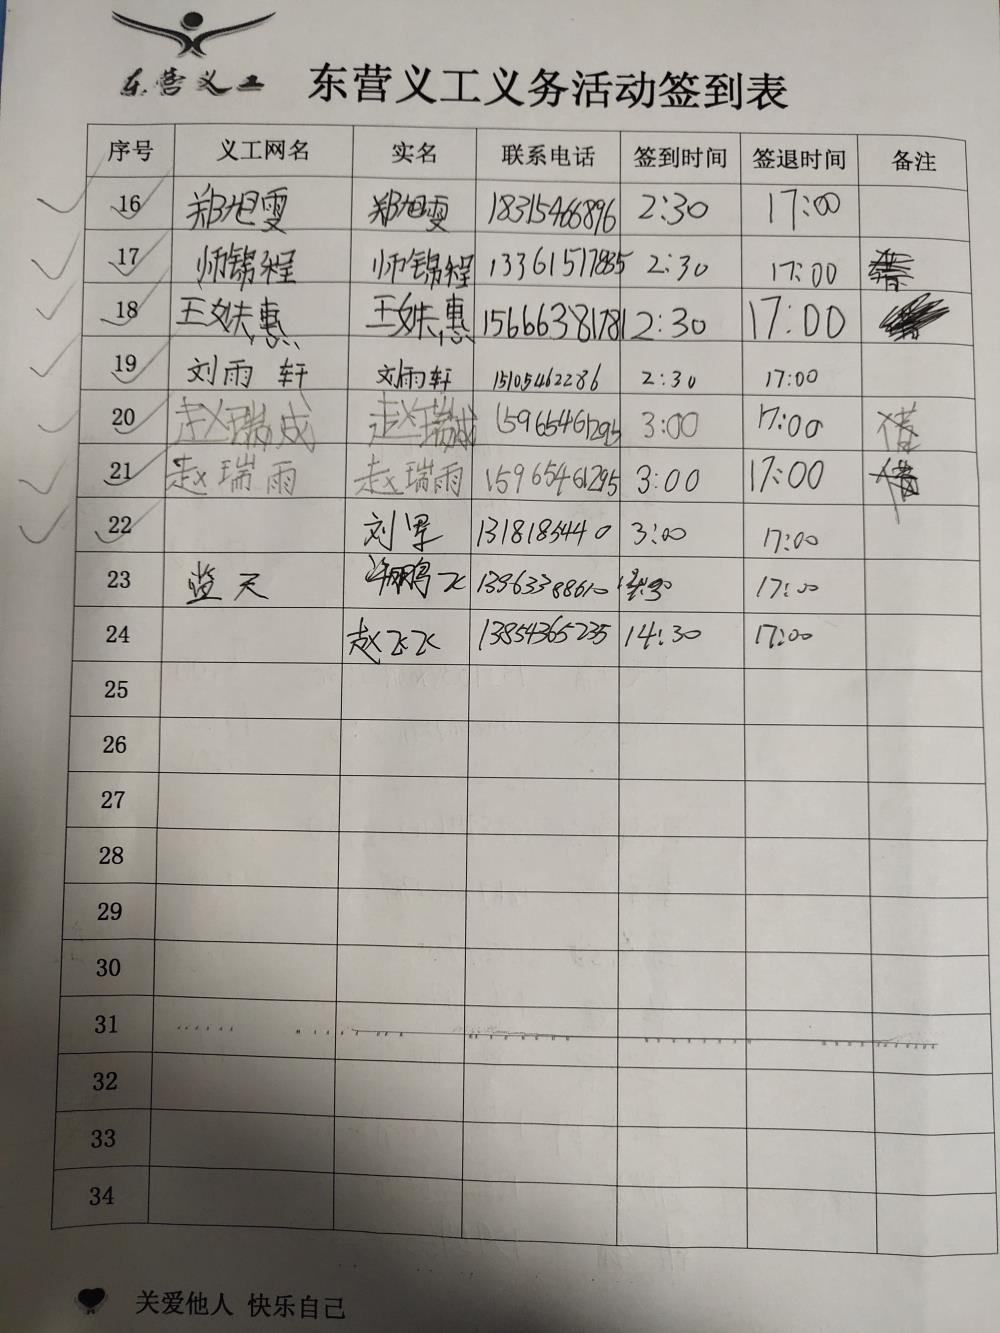 东营义工
东营义工义务活动签到表
序号 义工网名 实名 联系电话 签到时间 签退时间 备注
16 郑旭雯 郑旭雯 18315466896 2:30 17:00
17 师锦程 师锦程 13361517885 2:30 17:00
18 王姝惠 王姝惠 15666381781 2:30 17:00
19 刘雨轩 刘雨轩 15105462286 2:30 17:00
20 赵瑞成 赵瑞城 15965461295 3:00 17:00
21 赵瑞雨 赵瑞雨 15965461295 3:00 17:00
22 刘军 1318185440 3:00 17:00
23 蓝天 许鹏飞 13963388610 17:00
24 赵飞飞 13854365235 14:30 17:00
25
26
27
28
29
30
31
32
33
34
关爱他人 快乐自己